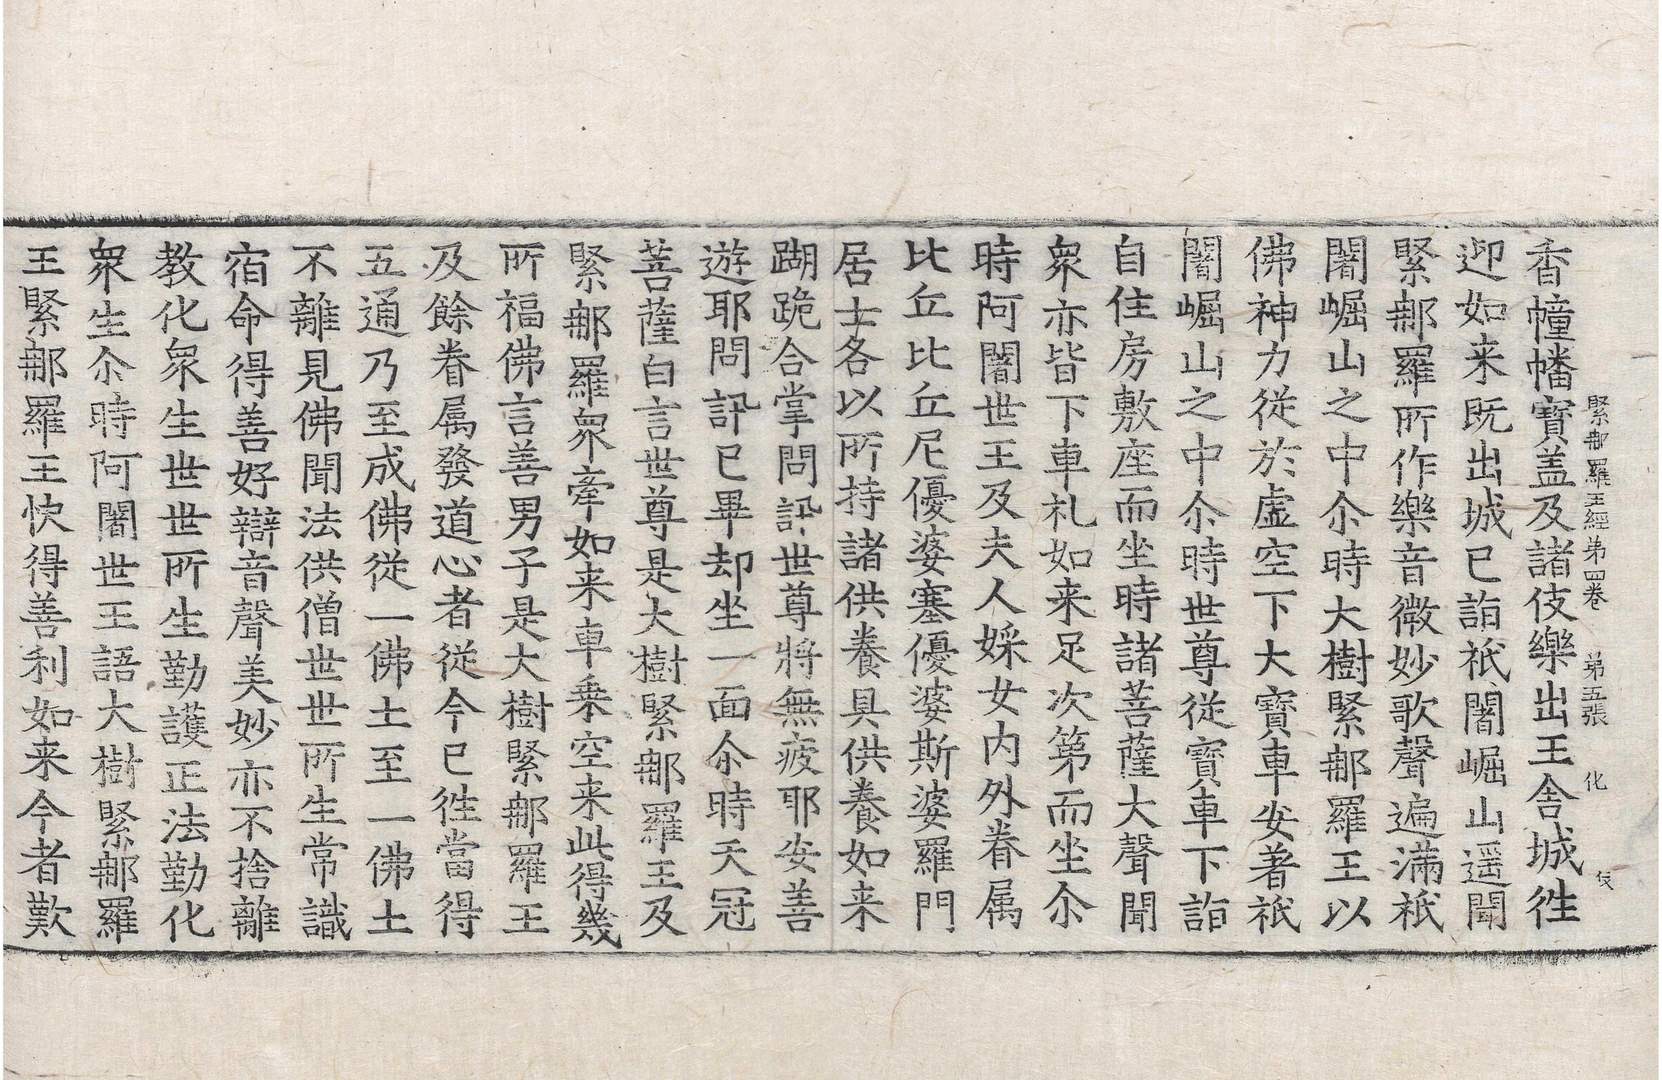 緊那羅王經第四卷　第五張　化
香幢幡寶盖及諸伎樂出王舍城徃
迎如来既出城已詣祇闍崛山遥聞
緊那羅所作樂音微妙歌聲遍滿祇
闍崛山之中尒時大樹緊那羅王以
佛神力從於虛空下大寶車安著祇
闍崛山之中尒時世尊從寶車下詣
自住房敷座而坐時諸菩薩大聲聞
衆亦皆下車礼如来足次第而坐尒
時阿闍世王及夫人婇女内外眷属
比丘比丘尼優婆塞優婆斯婆羅門
居士各以所持諸供養具供養如来
䠒跪合掌問訊世尊將無疲耶安善
遊耶問訊已畢却坐一面尒時天冠
菩薩白言世尊是大樹緊那羅王及
緊那羅衆牽如来車乗空来此得幾
所福佛言善男子是大樹緊那羅王
及餘眷属發道心者從今已徃當得
五通乃至成佛從一佛土至一佛土
不離見佛聞法供僧世世所生常識
宿命得善好辯音聲美妙亦不捨離
教化衆生世世所生勤護正法勤化
衆生尒時阿闍世王語大樹緊那羅
王緊那羅王快得善利如来今者歎